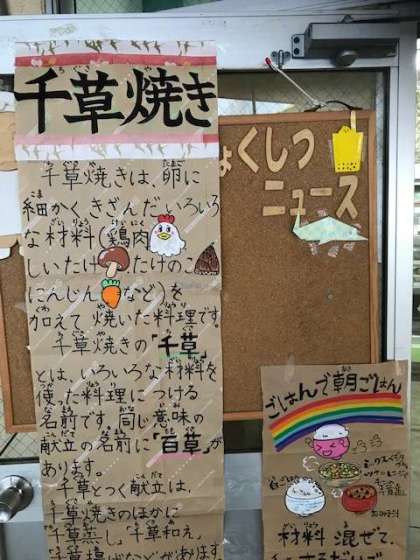 千草焼き
千草焼きは、卵に
細かくきざんだいろいろ
な材料（鶏肉
しいたけ たけのこ
にんじん など）を
加えて焼いた料理です。
千草焼きの「千草」
とは、いろいろな材料を
使った料理につける
名前です。同じ意味の
献立の名前に「百草」が
あります。
千草とつく献立は、
千草焼きのほかに
「千草蒸し」「千草和え」
ょくしつ
ニュース
ごはんで朝ごはん
材料 混ぜて、